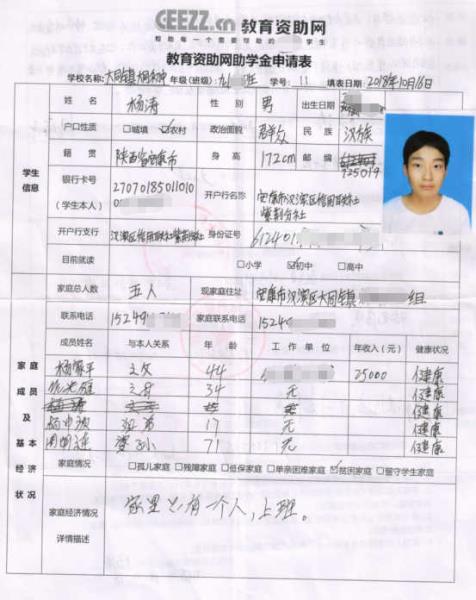 CEEZZ.cn 教育资助网
帮助每一个需要帮助的 学生
教育资助网助学金申请表
学校名称:大同镇 年级(班级) 学号: 11 填表日期:2018年10月16日
姓名 杨涛 性别 男 出生日期
户口性质 □城填 ☑农村 政治面貌 群众 民族 汉族
学生信息
籍贯 陕西省安康市 身高 172cm 邮编 725019
银行卡号(学生本人) 27070185011010 开户行名称 安康市汉滨区信用联社紫荆分社
开户行支行 汉滨区信用联社紫荆分社 身份证号 612401
目前就读 □小学 ☑初中 □高中
家庭总人数 五人 现家庭住址 安康市汉滨区大同镇 组
联系电话 15249 家庭联系电话 1524
家庭成员及基本经济状况
成员姓名 与本人关系 年龄 工作单位 年收入(元) 健康状况
杨 平 父 44 25000 健康
34 无 健康
健康
17 无 健康
71 无 健康
家庭情况 □孤儿家庭 □残障家庭 □低保家庭 □单亲困难家庭 ☑贫困家庭 □留守学生家庭
家庭经济情况详情描述 家里只有一个人,上班。